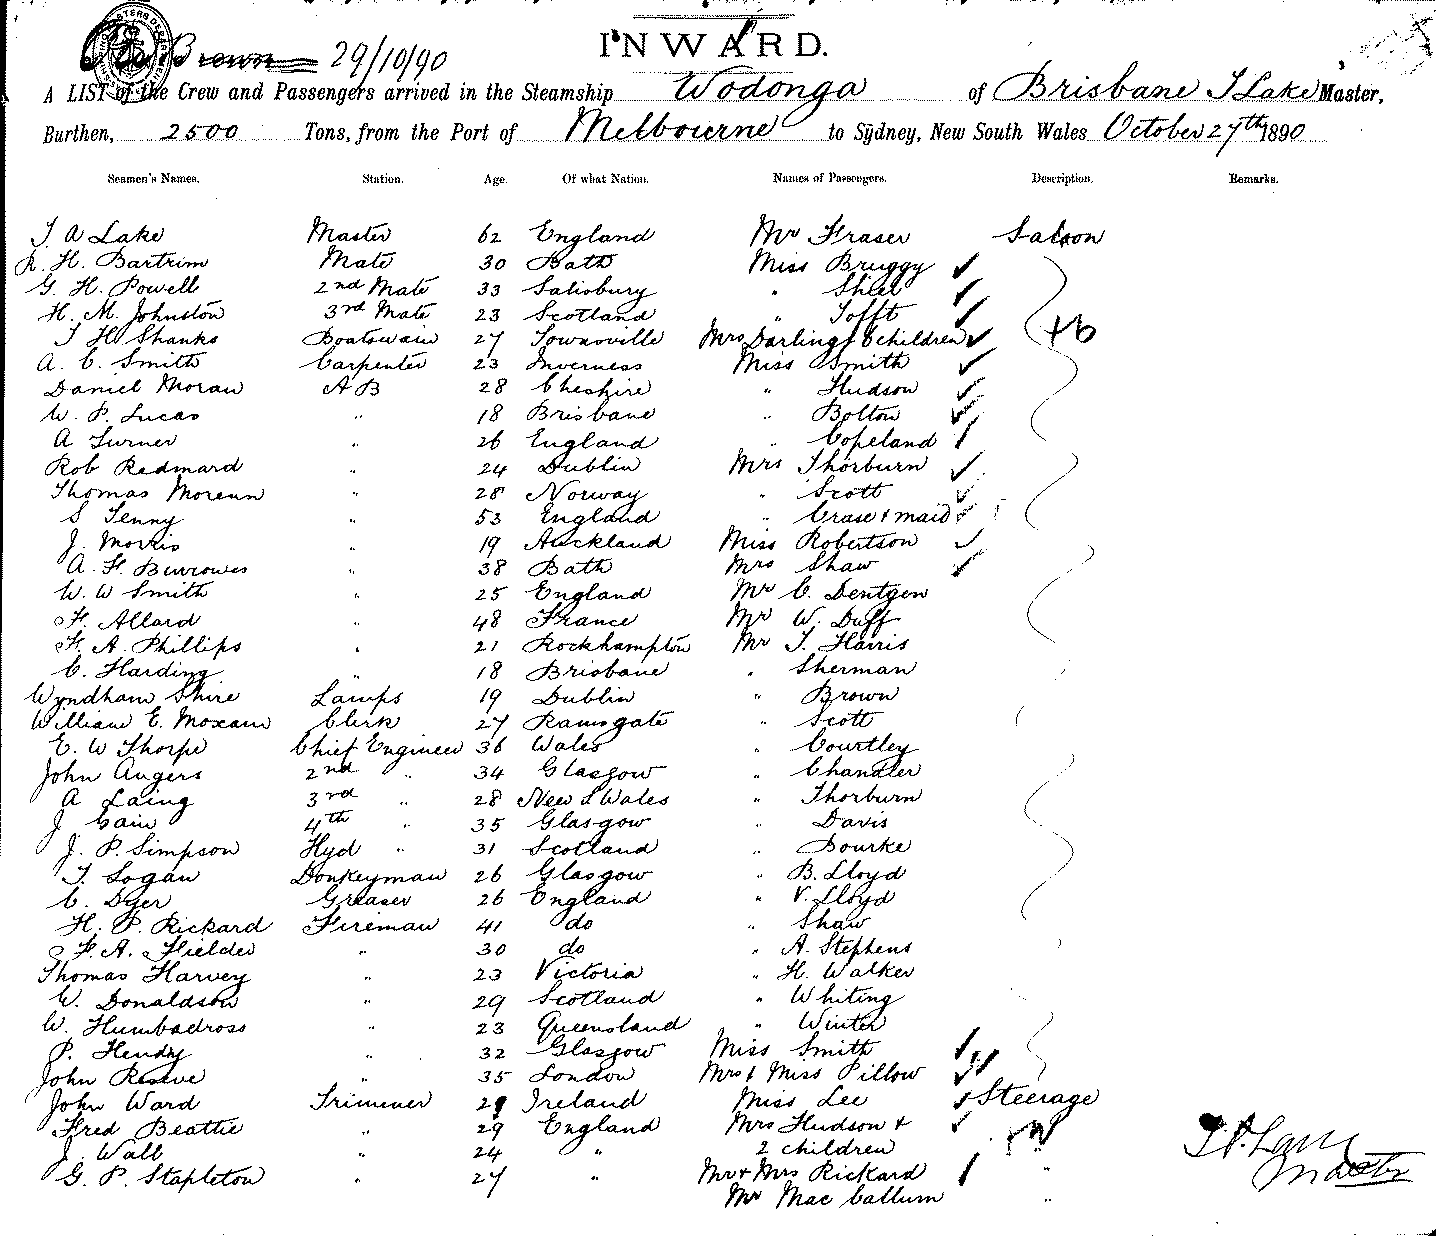 Brown 29/10/90
INWARD.
A LIST of the Crew and Passengers arrived in the Steamship Wodonga of Brisbane T Lake Master,
Burthen, 2500 Tons, from the Port of Melbourne to Sydney, New South Wales October 27th 1890
Seamen's Names. Station. Age. Of what Nation. Names of Passengers. Description. Remarks.
T. A Lake Master 62 England Mr Fraser Saloon
H. Bartrim Mate 30 Bath Miss Bruggy
G. H. Powell 2nd Mate 33 Salisbury " Shiel
H. M. Johnston 3rd Mate 23 Scotland " Tofft
T H Shanks Boatswain 27 Townsville Mrs Darling & 6 children + 6
A. C. Smith Carpenter 23 Inverness Miss Smith
Daniel Moran A B 28 Cheshire " Hudson
W. P. Lucas " 18 Brisbane " Bolton
A Turner " 26 England " Copeland
Rob Redmard " 24 Dublin Mrs Thorburn
Thomas Morenn " 28 Norway " Scott
S Tenny " 53 England " Crase & maid
J. Morris " 19 Auckland Miss Robertson
A. F. Burrowes " 38 Bath Mrs Shaw
W. W Smith " 25 England Mr C. Dentgen
F. Allard " 48 France Mr W. Duff
F. A. Phillips " 21 Rockhampton Mr T. Harris
C. Harding " 18 Brisbane " Sherman
Wyndham Shire Lamps 19 Dublin " Brown
William E. Moxam Clerk 27 Ramsgate " Scott
E. W Thorpe Chief Engineer 36 Wales " Courtley
John Angers 2nd " 34 Glasgow " Chandler
A Laing 3rd " 28 New S Wales " Thorburn
J. Cain 4th " 35 Glasgow " Davis
J. P. Simpson Hyd " 31 Scotland " Bourke
T. Logan Donkeyman 26 Glasgow " B. Lloyd
C. Dyer Greaser 26 England " V. Lloyd
H. P. Rickard Fireman 41 do " Shaw
F. A. Fielder " 30 do " A. Stephens
Thomas Harvey " 23 Victoria " H. Walker
W. Donaldson " 29 Scotland " Whiting
W. Humbadross " 23 Queensland " Winter
P. Hendy " 32 Glasgow Miss Smith
John Reeve " 35 London Mrs & Miss Pillow
John Ward Trimmer 29 Ireland Miss Lee Steerage
Fred Beattie " 29 England Mrs Hudson & "
J. Wall " 24 " 2 children "
G. P. Stapleton " 27 " Mr & Mrs Rickard "
Mr Mac Callum "
T A. Lake
Master